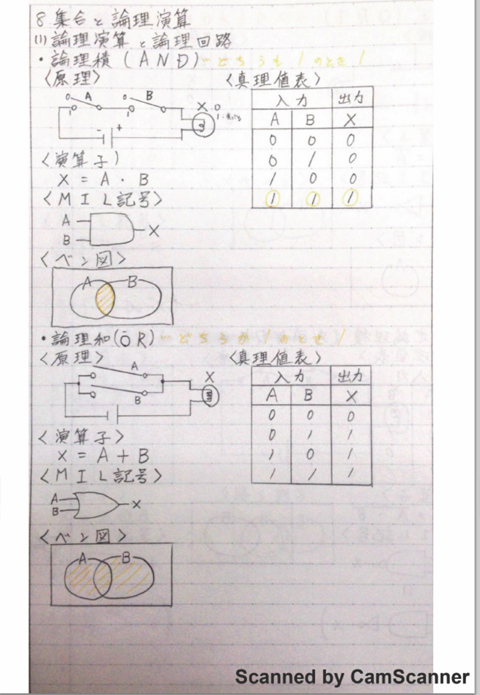 8 集合と論理演算
(1) 論理演算と論理回路
・論理積(AND) ーどちらも1のとき1
<原理> <真理値表>
A B X
0 1 0 1
0
入力 出力
A B X
0 0 0
0 1 0
1 0 0
1 1 1
- +
<演算子>
X = A · B
<MIL記号>
A
B
X
<ベン図>
A B
・論理和(OR) ーどちらかが1のとき1
<原理> <真理値表>
A
B
X
入力 出力
A B X
0 0 0
0 1 1
1 0 1
1 1 1
<演算子>
X = A + B
<MIL記号>
A
B
X
<ベン図>
A B
Scanned by CamScanner